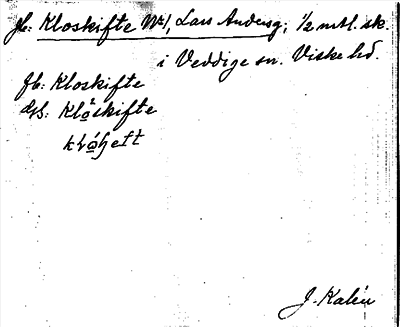 jb: Kloskifte Nr 1, Lars Andersg, 1/2 mtl. sk.
i Veddige sn. Viske hd.
jb: Kloskifte
Dps: Klåskifte
J. Kalén